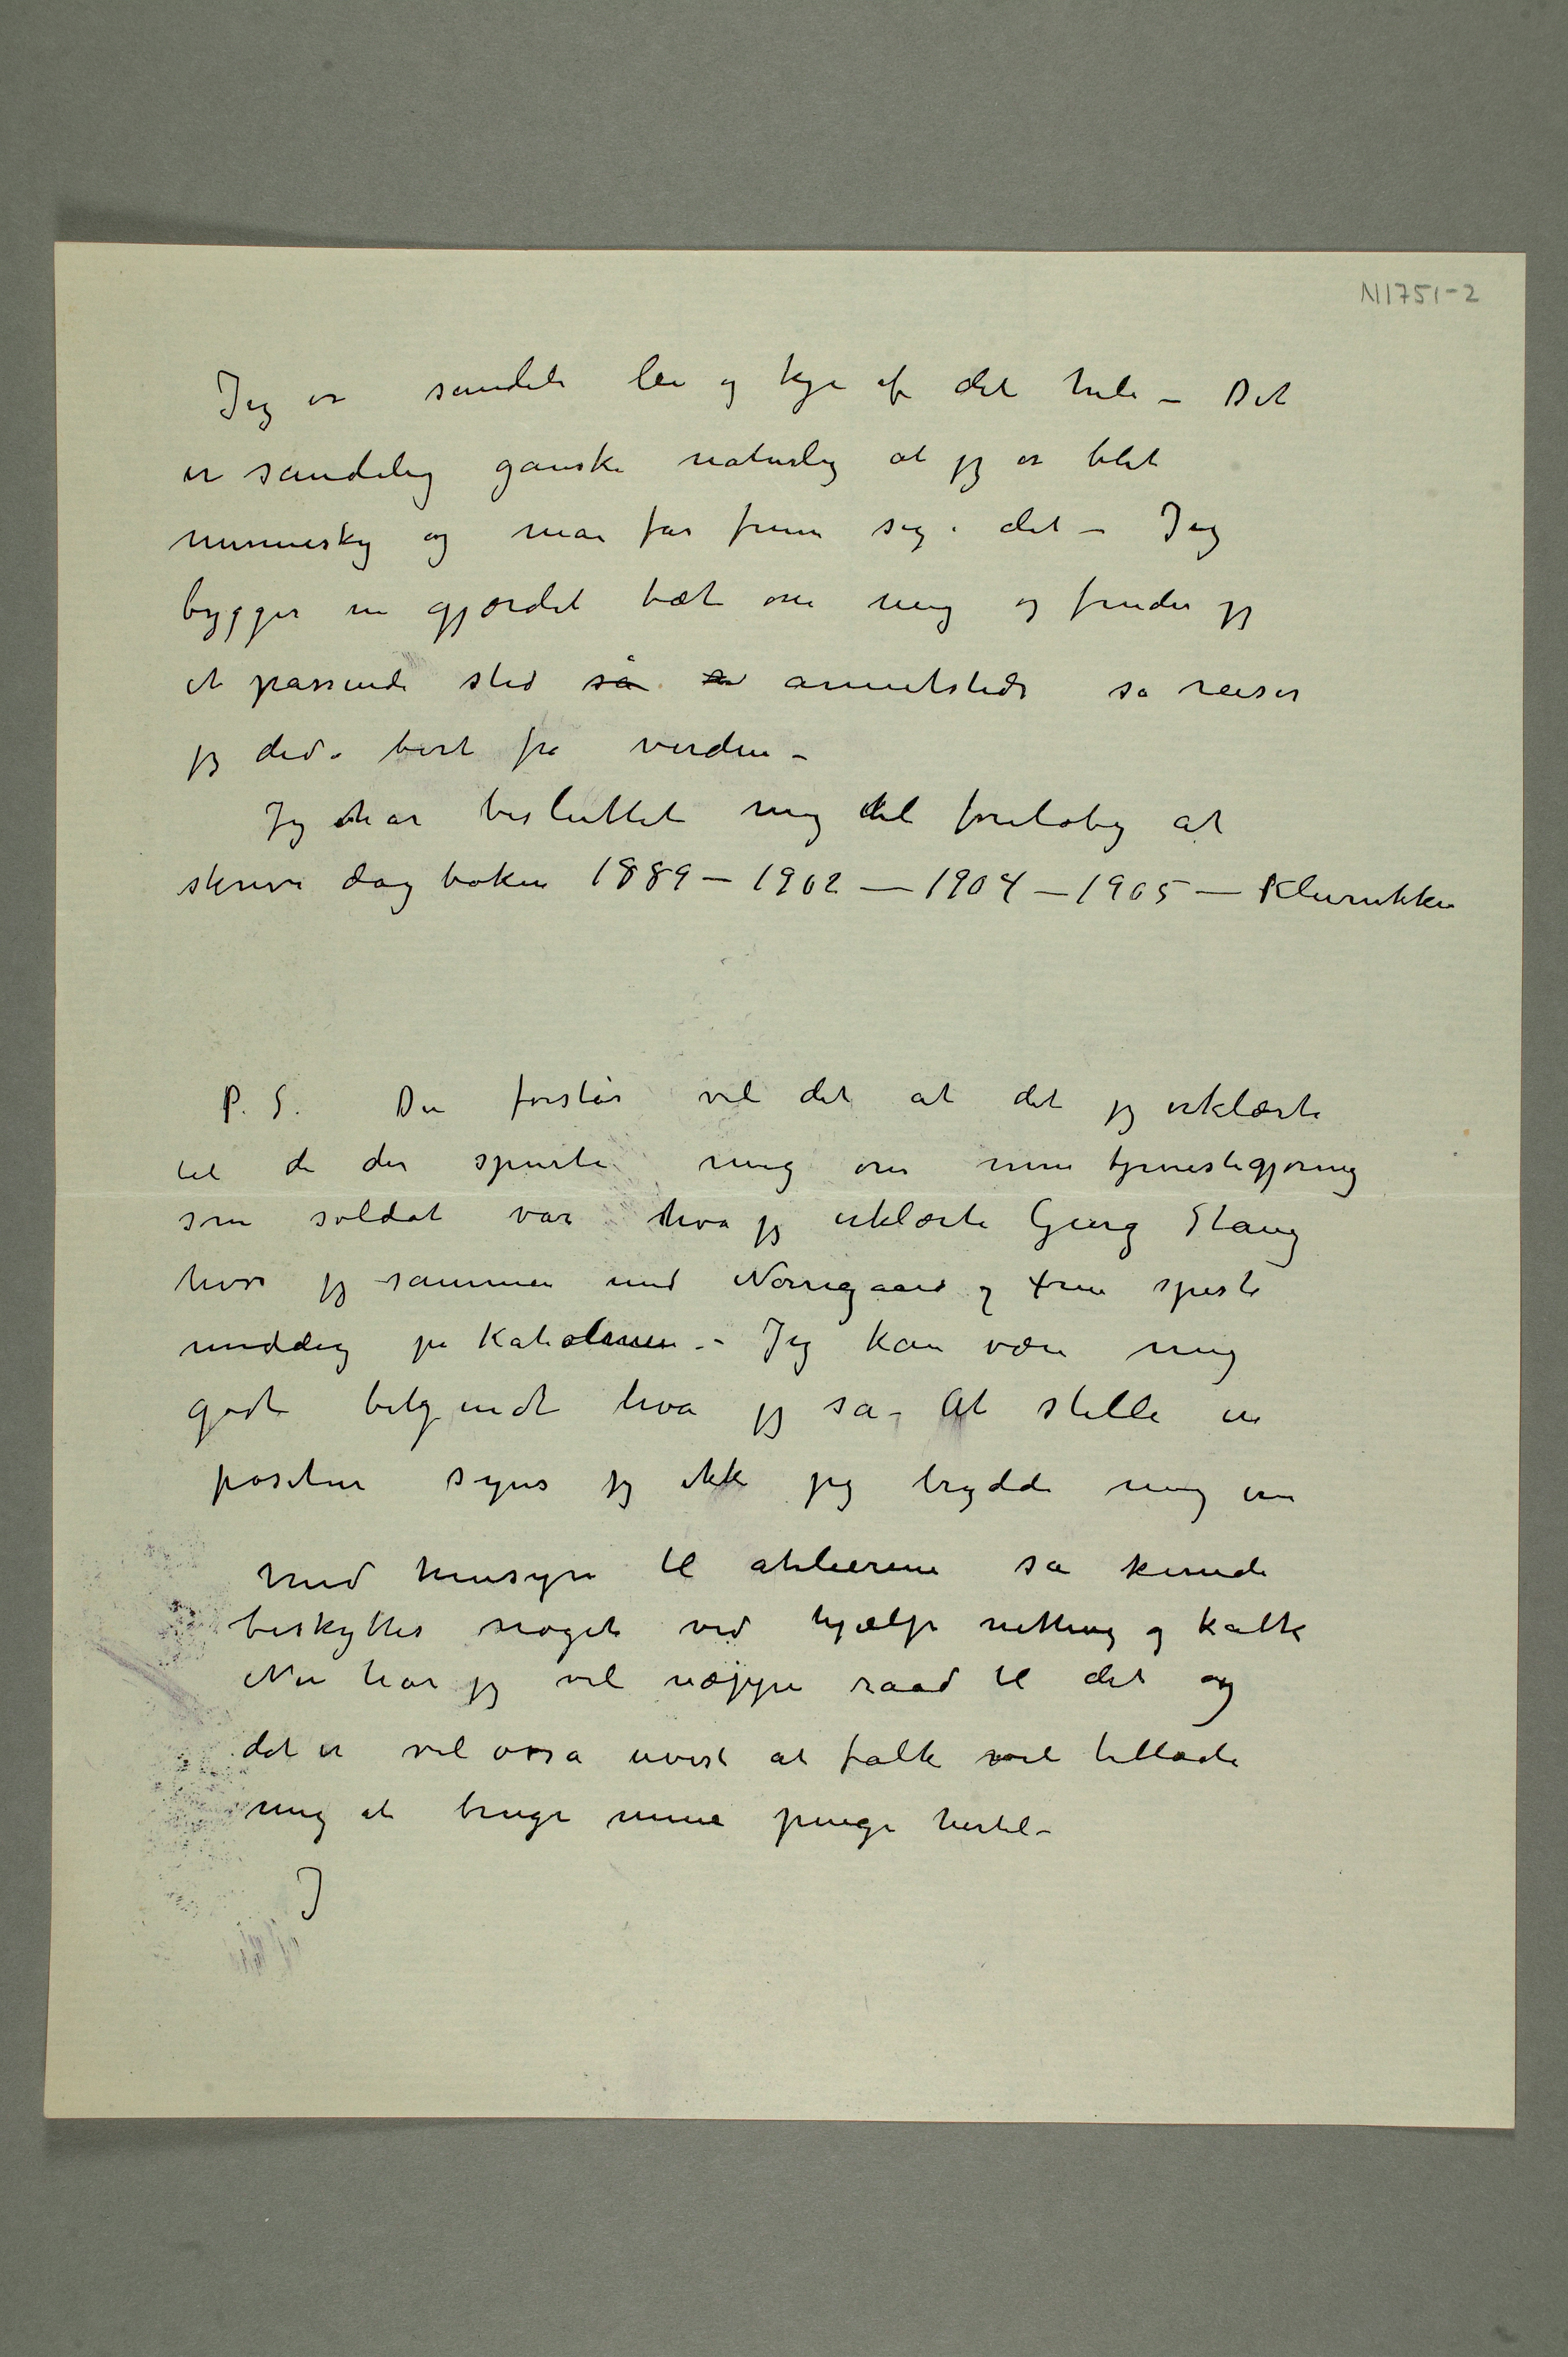 N1751-2
Jeg er sandeli lei og kje af det hele – Det
er sandelig ganske naturlig at jeg er blet
mennesky og man får finne sig i det – Jeg
bygger nu gjærdet tæt om meg og finder jeg
et passende sted så annetsteds så reiser
jeg did – bort fra verden –
Jeg har besluttet mig til foreløbig at
skrive dagboken 1889 – 1902 – 1904 – 1905 – Klinikken
P. S. Du forstår vel det at det jeg erklærte
til de der spurte mig om min tjenestegjøring
som soldat var hva jeg erklærte Georg Stang
hvor jeg sammen med Nørregaard og Frue spiste
middag på Kaholmen. – Jeg kan være mig
godt bekjendt hva jeg sa – At stille en
positur synes jeg ikke jeg brydde mig om
Med hensyn til atelierene så kunde
beskyttes noget ved hjælp netting og kalk
Nu har jeg vel næppe raad til det og
det er vel osså uvist at folk vil tillade
mig at bruge mine penge hertil –
J